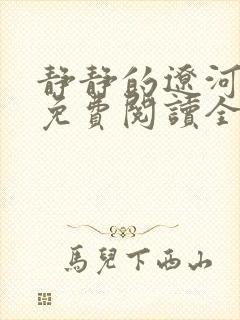 静静的遼河
免費閱讀全
馬兒下西山